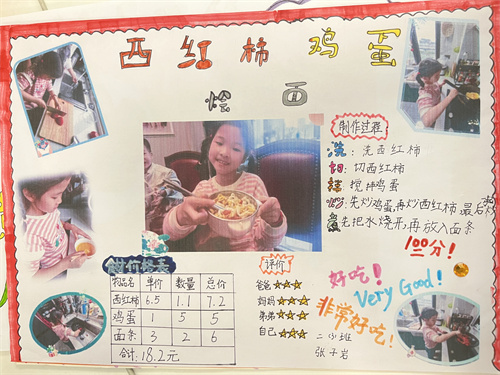 西红柿鸡蛋
烩面
制作过程
洗:洗西红柿
切:切西红柿
搅:搅拌鸡蛋
炒:先炒鸡蛋,再炒西红柿,最后
煮:先把水烧开,再放入面条
100分!
价格表
物品名 单价 数量 总价
西红柿 6.5 1.1 7.2
鸡蛋 1 5 5
面条 3 2 6
合计:18.2元
评价
爸爸☆☆☆
妈妈☆☆☆☆
弟弟☆☆☆
自己☆☆☆
好吃!
Very Good!
非常好吃!
二(1)班
张子岩